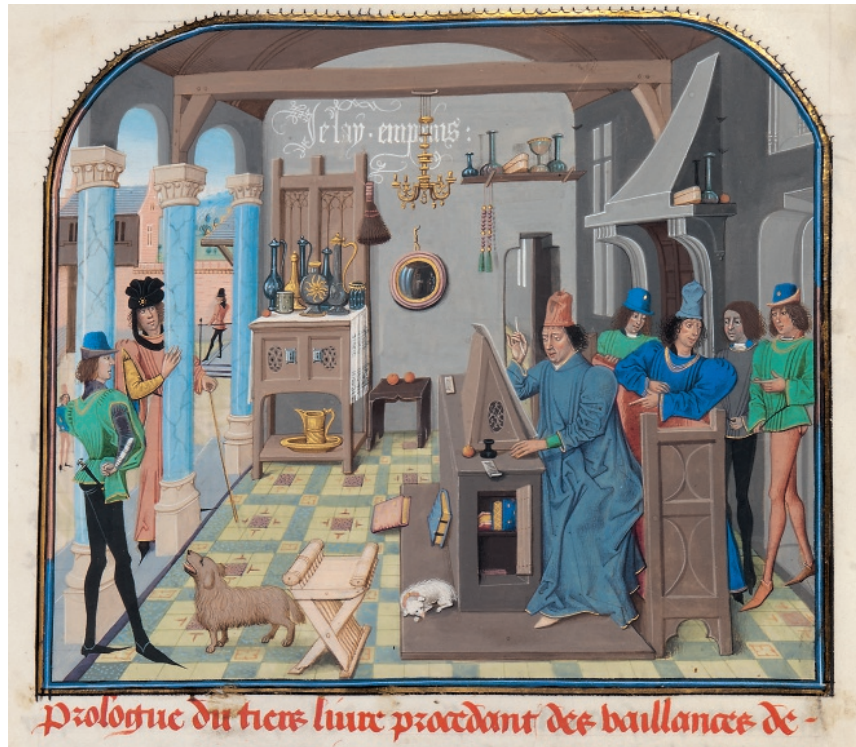 Je lay · emprins :
Prologue du tiers liure procedant des vaillances de -